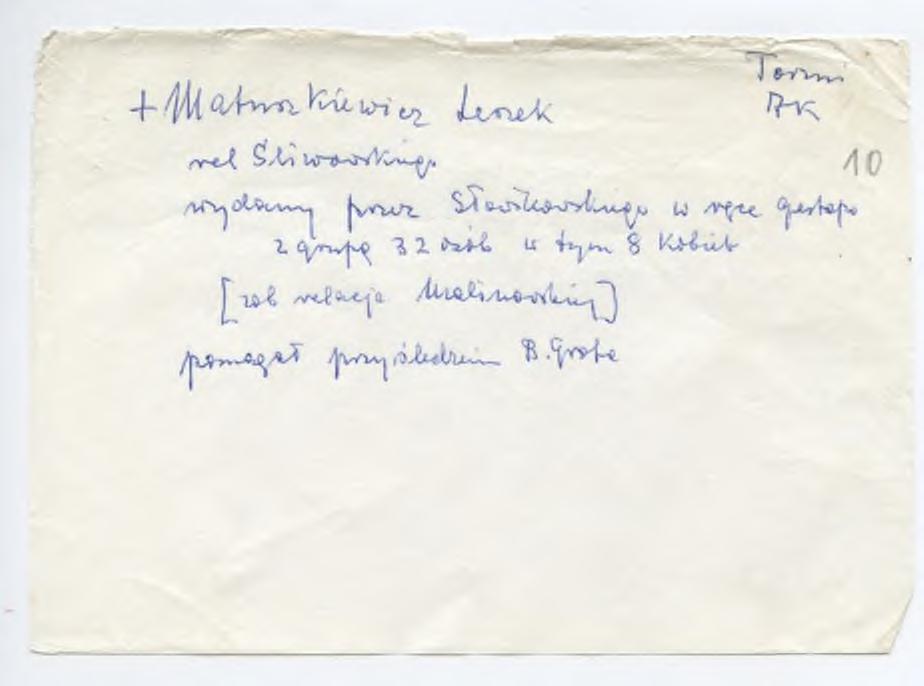 Toruń
AK
+ Matuszkiewicz Leszek
10
vel Śliwowskiego
wydany przez Sławikowskiego w ręce gestapo
z grupą 32 osób w tym 8 kobiet
[zob relacja Malinowskiej]
pomagał przy śledzeniu B. Grota